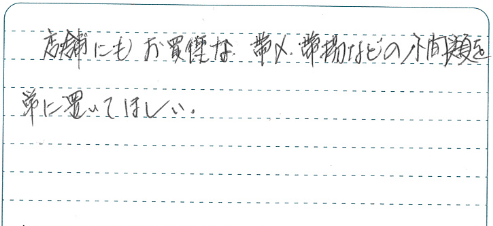 店舗にもお買得な 帯〆.帯揚などの小間類を
常に置いてほしい.